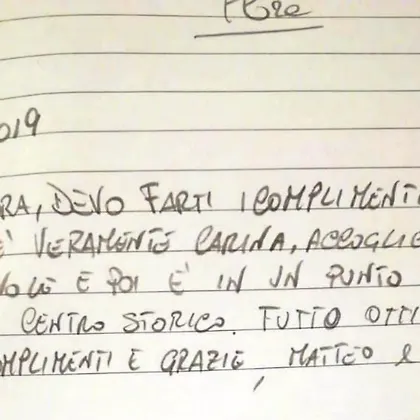 019
RA, DEVO FARTI I COMPLIMENTI
E' VERAMENTE CARINA, ACCOGLIE
E POI E' IN UN PUNTO
CENTRO STORICO. TUTTO OTTI
OMPLIMENTI E GRAZIE, MATTEO E